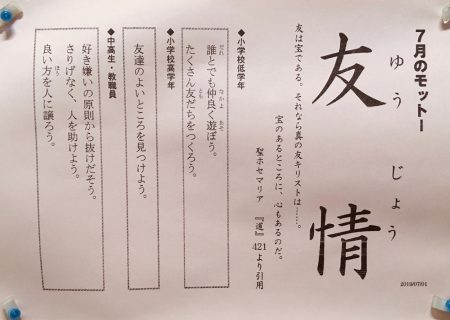 7月のモットー
友情
ゆうじょう
友は宝である。それなら真の友キリストは……。
宝のあるところに、心もあるのだ。
聖ホセマリア 『道』 421より引用
◆小学校低学年
誰とでも仲良く遊ぼう。
だれ なかよ あそ
たくさん友だちをつくろう。
とも
◆小学校高学年
友達のよいところを見つけよう。
◆中高生・教職員
好き嫌いの原則から抜けだそう。
さりげなく、人を助けよう。
良い方を人に譲ろう。
ほう
2019/07/01